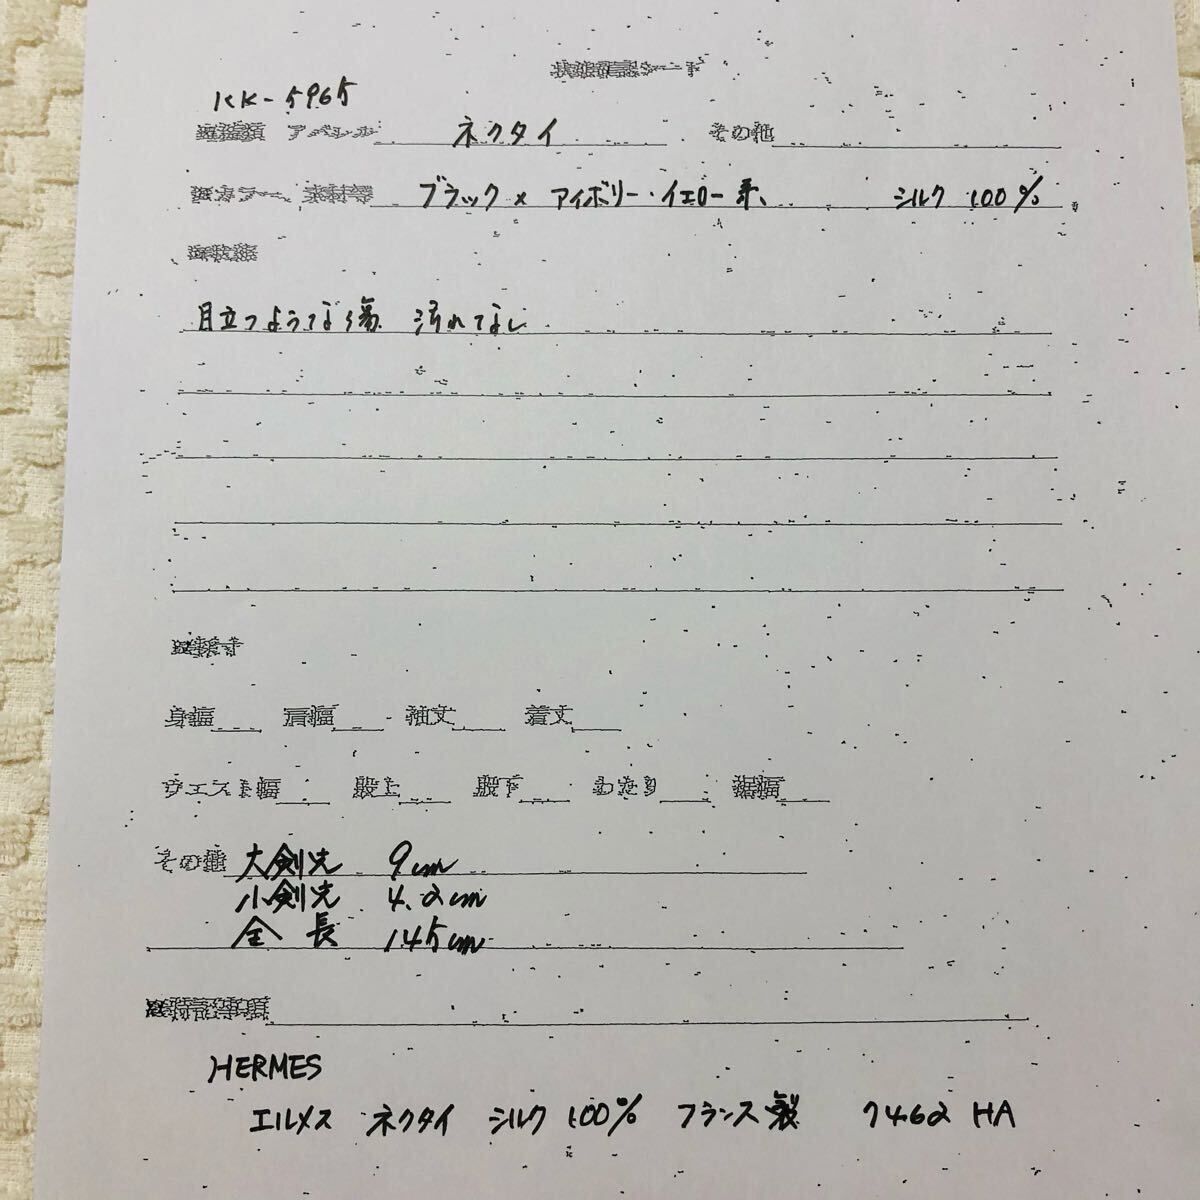 状態確認シート
KK-5965
アパレル ネクタイ その他
カラー、素材等 ブラック × アイボリー・イエロー系、 シルク 100%
目立つような傷 汚れてなし
身幅 肩幅 袖丈 着丈
ウエスト幅 股上 股下 わたり 裾幅
その他 大剣先 9cm
小剣先 4.2cm
全長 145cm
特記事項
HERMES
エルメス ネクタイ シルク 100% フランス製 7462 HA